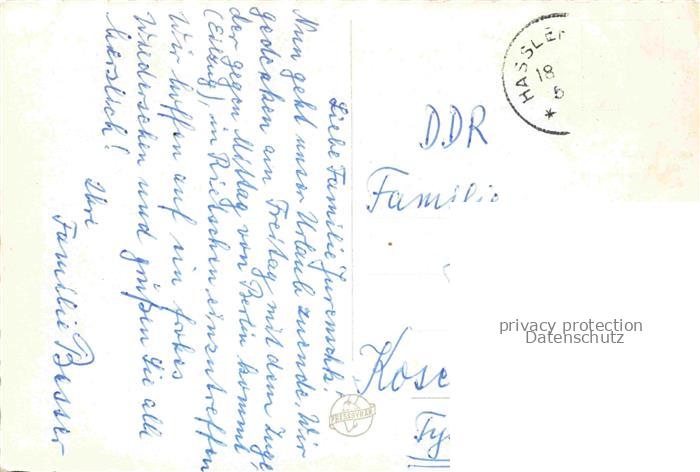 Liebe Familie Juremschk!
Nun geht unser Urlaub zuende. Wir
gedenken am Freitag mit dem Zuge,
der gegen Mittag von Berlin kommt
(Eilzug), in Rietschen einzutreffen
Wir hoffen auf ein frohes
Wiedersehen und grüßen Sie alle
herzlich!
Ihre
Familie Besser
HASSLE
18
5
DDR
Famili
Kose
PRESSBYRÅN
privacy protection
Datenschutz